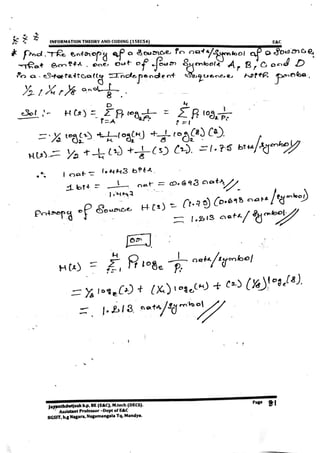 INFORMATION THEORY AND CODING (15EC54) E&C
* Find. The Entropy of a Source in nats/symbol of a Source,
that emits one out of four Symbols A, B, C and D
in a Statistically Independent Sequence with probs.
1/2, 1/4, 1/8 and 1/8.
Sol :- H(s) = Σ_{i=A}^{D} Pi log2 1/Pi = Σ_{i=1}^{4} Pi log2 1/Pi
= 1/2 log2(2) + 1/4 log2(4) + 1/8 log2(8) (2).
H(s) = 1/2 + 1/4 (2) + 1/8 (3) (2). = 1.75 bits/Symbol //
∴ 1 nat = 1.443 bits.
1 bit = 1/1.443 nat = 0.693 nats //
Entropy of Source H(s) = (1.75) (0.693 nats/Symbol)
= 1.213 nats/Symbol //
or
H(s) = Σ_{i=1}^{4} Pi loge 1/Pi nats/symbol
= 1/2 loge(2) + (1/4) loge(4) + (2) (1/8) loge(8).
= 1.213 nats/symbol //
Jayanthdwijesh h.p, BE (E&C), M.tech (DECS). Page 91
Assistant Professor -Dept of E&C
BGSIT, b,g Nagara, Nagamangala Tq, Mandya.